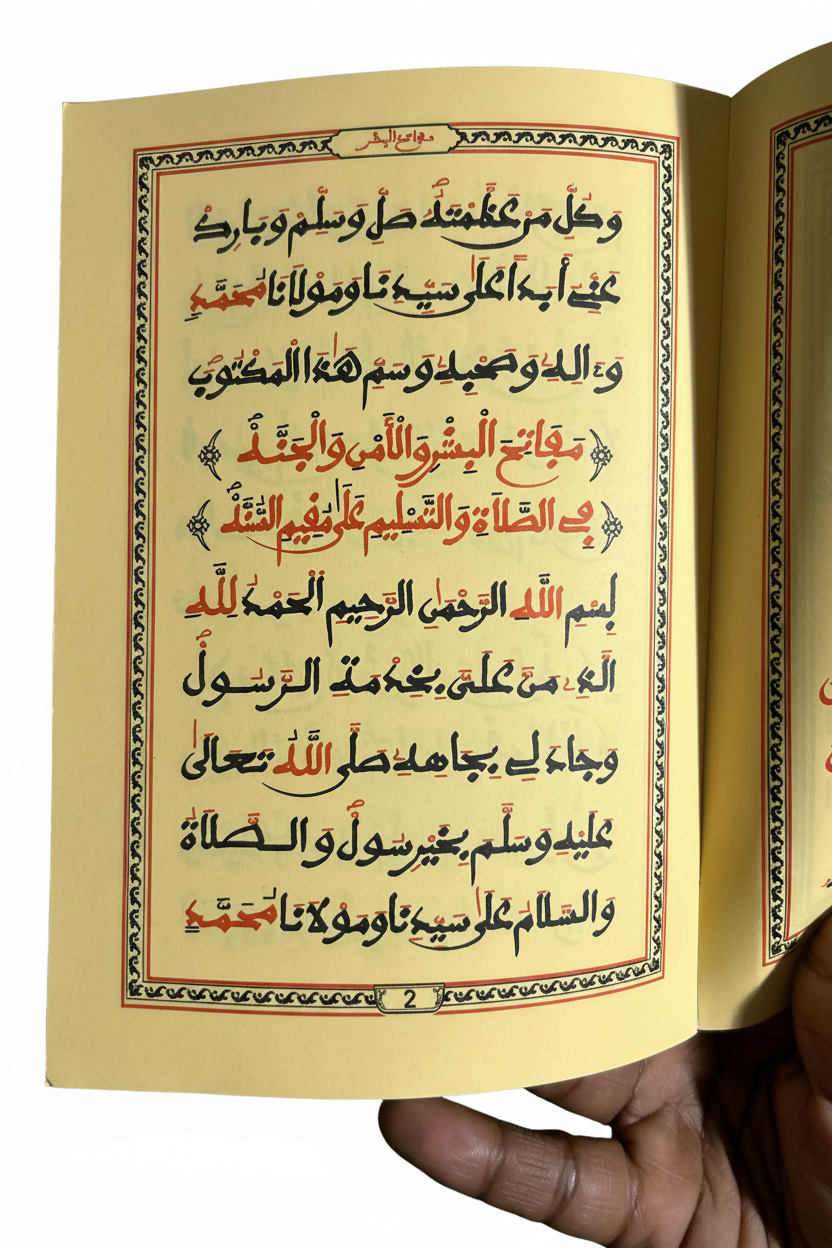 مفاتح البشر
وَكُلِّ مَنْ عَظَّمْتَهُ صَلِّ وَسَلِّمْ وَبَارِكْ
عَنِّي أَبَداً عَلَى سَيِّدِنَا وَمَوْلَانَا مُحَمَّدٍ
وَءَالِهِ وَصَحْبِهِ وَسَمِّ هَذَا الْمَكْتُوبَ
مَفَاتِحَ الْبِشْرِ وَالْأَمْنِ وَالْجَنَّةْ
فِي الصَّلَاةِ وَالتَّسْلِيمِ عَلَى مُقِيمِ السُّنَّةْ
بِسْمِ اللَّهِ الرَّحْمَنِ الرَّحِيمِ الْحَمْدُ لِلَّهِ
الَّذِي مَنَّ عَلَيَّ بِخِدْمَةِ الرَّسُولْ
وَجَادَ لِي بِجَاهِهِ صَلَّى اللَّهُ تَعَالَى
عَلَيْهِ وَسَلَّمَ بِخَيْرِ سُولْ وَالصَّلَاةُ
وَالسَّلَامُ عَلَى سَيِّدِنَا وَمَوْلَانَا مُحَمَّدٍ
2